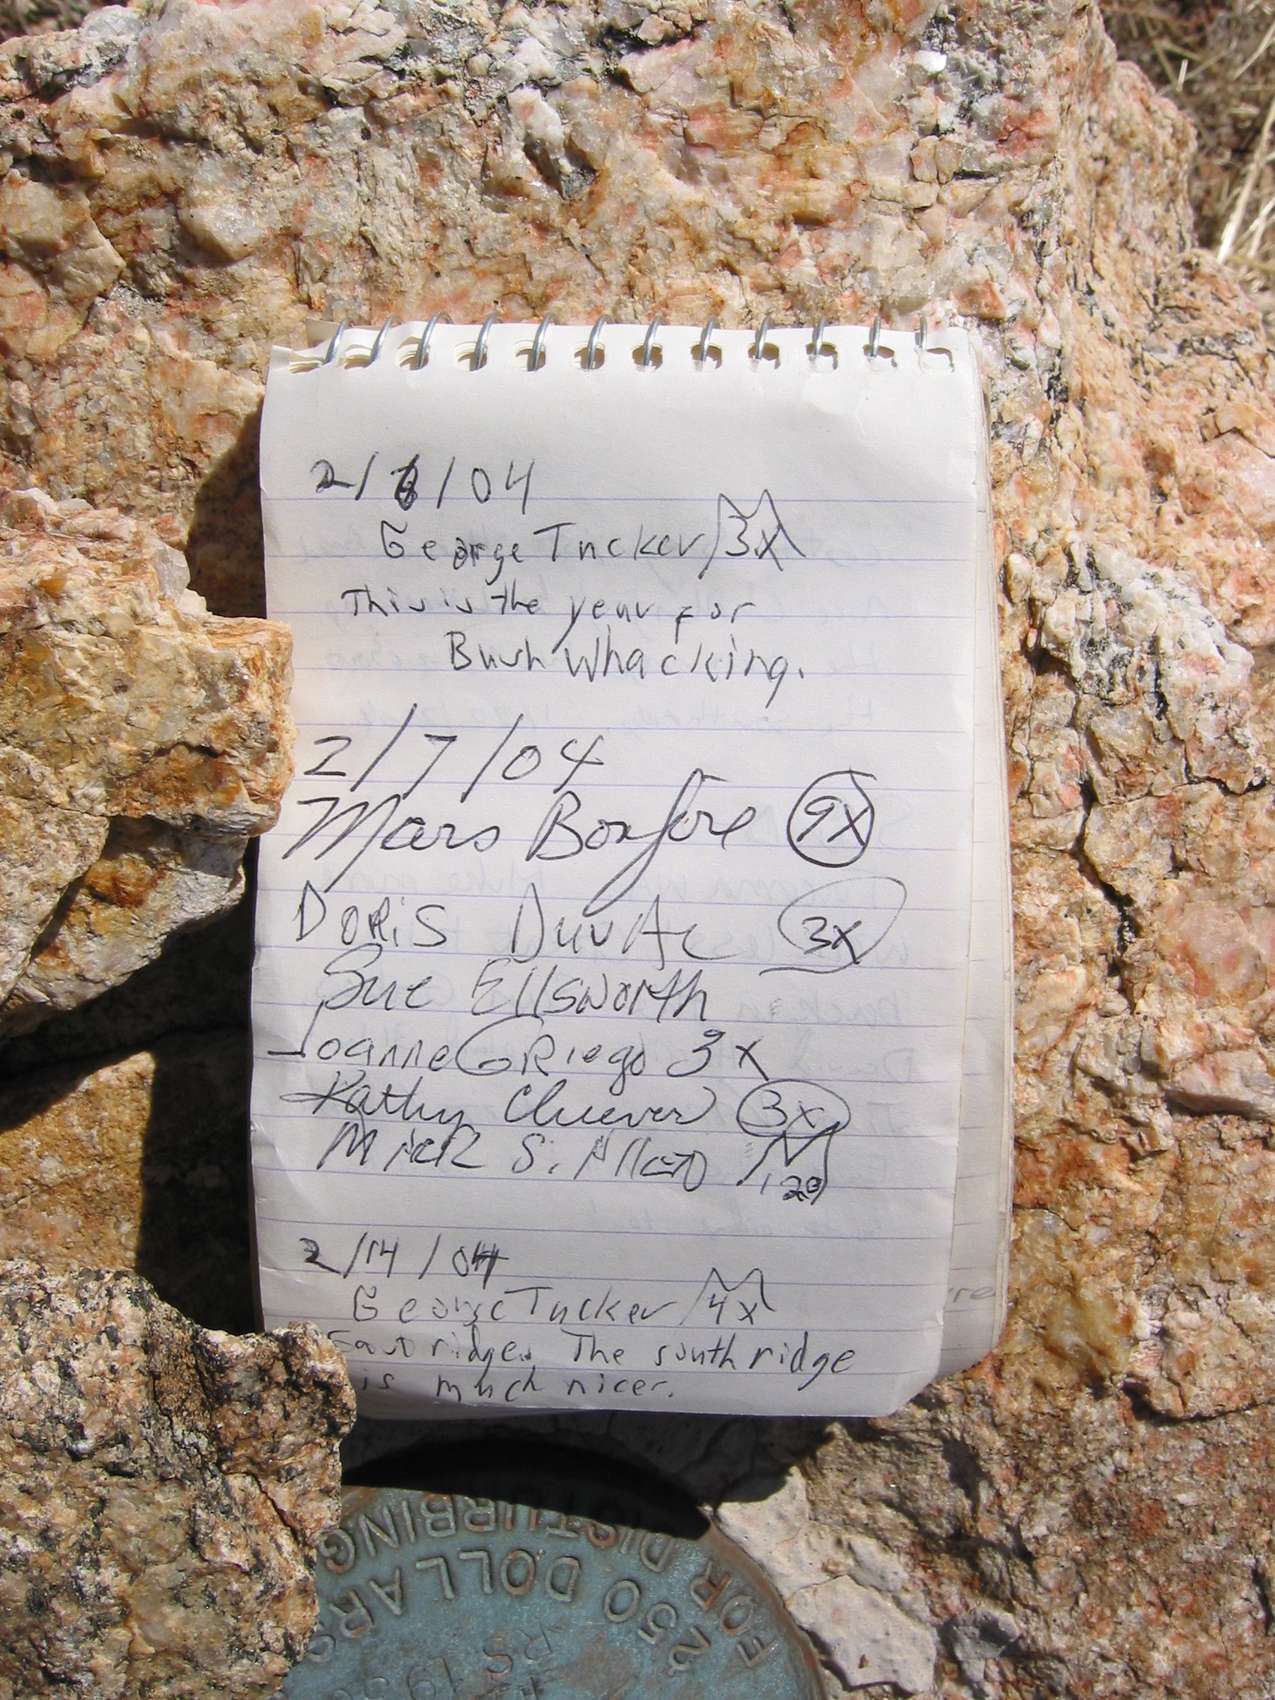 2/6/04
George Tucker 3x
This is the year for
Bush Whacking.
2/7/04
Mars Bonfire 9x
Doris Duval 3x
Sue Ellsworth
Joanne Griego 3x
Kathy Cheever 3x
Mark S. Allen
2/14/04
George Tucker 4x
ridge. The south ridge
is much nicer.
FOR DISTURBING
250 DOLLARS